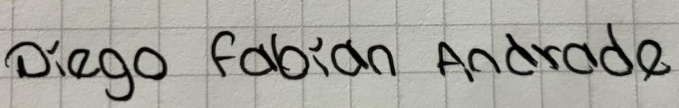 Diego Fabian Andrade